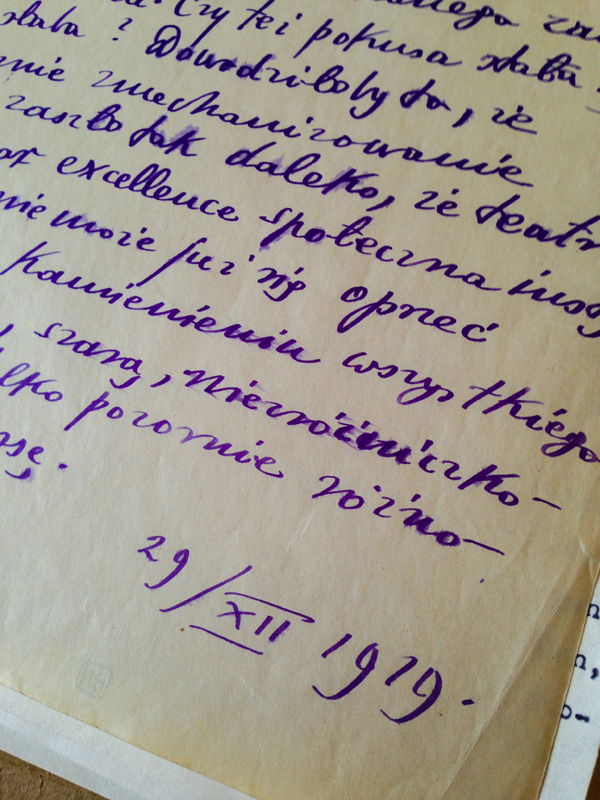 Czy też pokusa słaba
słaba? Dowodziłoby to, że
zmechanizowanie
zaszło tak daleko, że teatr
excellence społeczna
nie może już się oprzeć
Kamienieniu wszystkiego
szarą, niezróżniczko-
pozornie różno-
29/XII 1919.